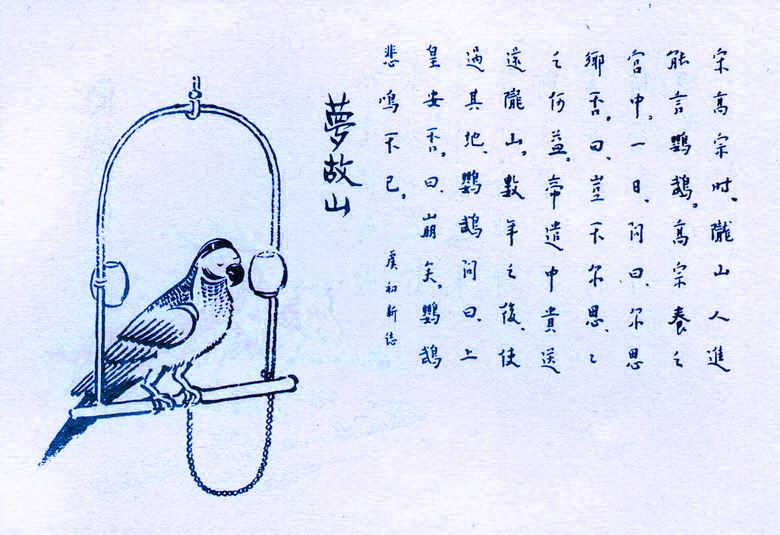 宋高宗时、隴山人進
能言鸚鵡。高宗養之
宫中。一日、问曰、尔思
鄉否。曰、豈不尔思、
之何益。帝遣中貴送
還隴山。數年之後、使
過其地、鸚鵡问曰、上
皇安否。曰、崩矣。鸚鵡
悲鳴不已。
虞初新誌
夢故山